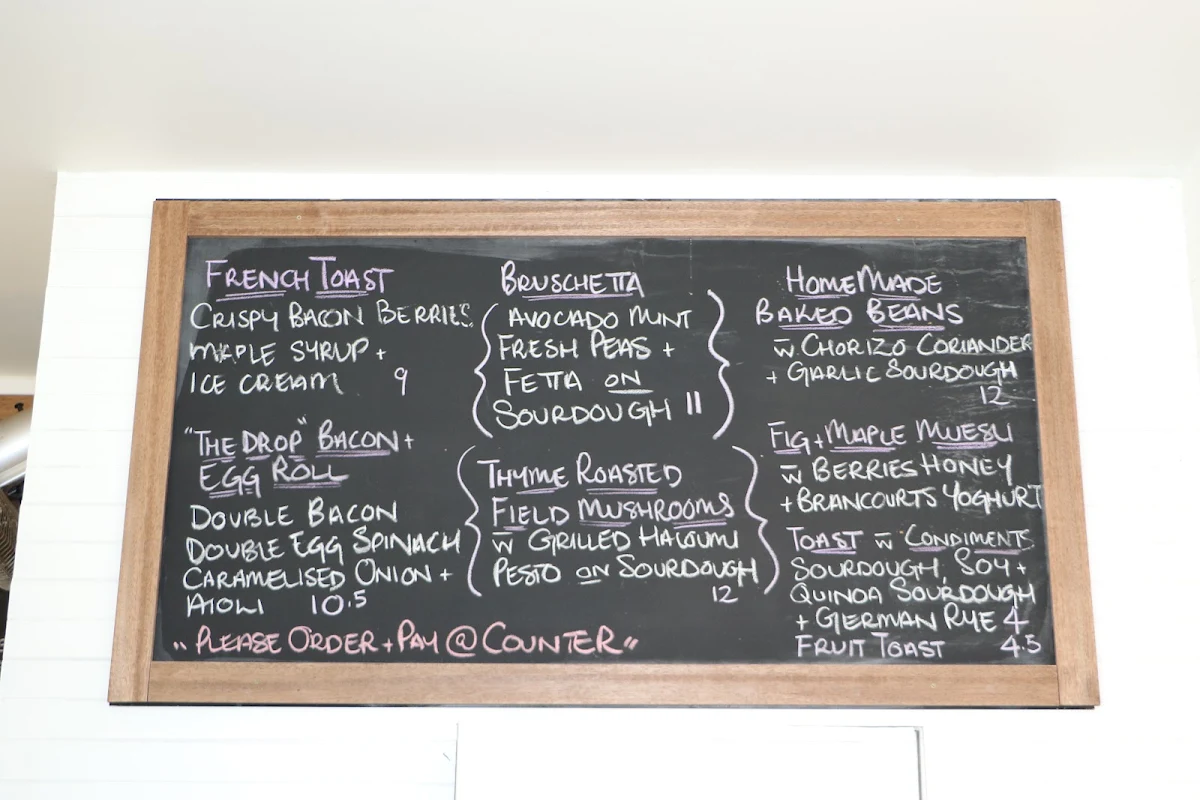 FRENCH TOAST
CRISPY BACON BERRIES
MAPLE SYRUP +
ICE CREAM 9
"THE DROP" BACON +
EGG ROLL
DOUBLE BACON
DOUBLE EGG SPINACH
CARAMELISED ONION +
AIOLI 10.5
BRUSCHETTA
AVOCADO MINT
FRESH PEAS +
FETTA ON
SOURDOUGH 11
THYME ROASTED
FIELD MUSHROOMS
W GRILLED HALOUMI
PESTO ON SOURDOUGH
12
HOMEMADE
BAKED BEANS
W CHORIZO CORIANDER
+ GARLIC SOURDOUGH
12
FIG + MAPLE MUESLI
W BERRIES HONEY
+ BRANCOURTS YOGHURT
TOAST W CONDIMENTS
SOURDOUGH, SOY +
QUINOA SOURDOUGH
+ GERMAN RYE 4
FRUIT TOAST 4.5
"PLEASE ORDER + PAY @ COUNTER"